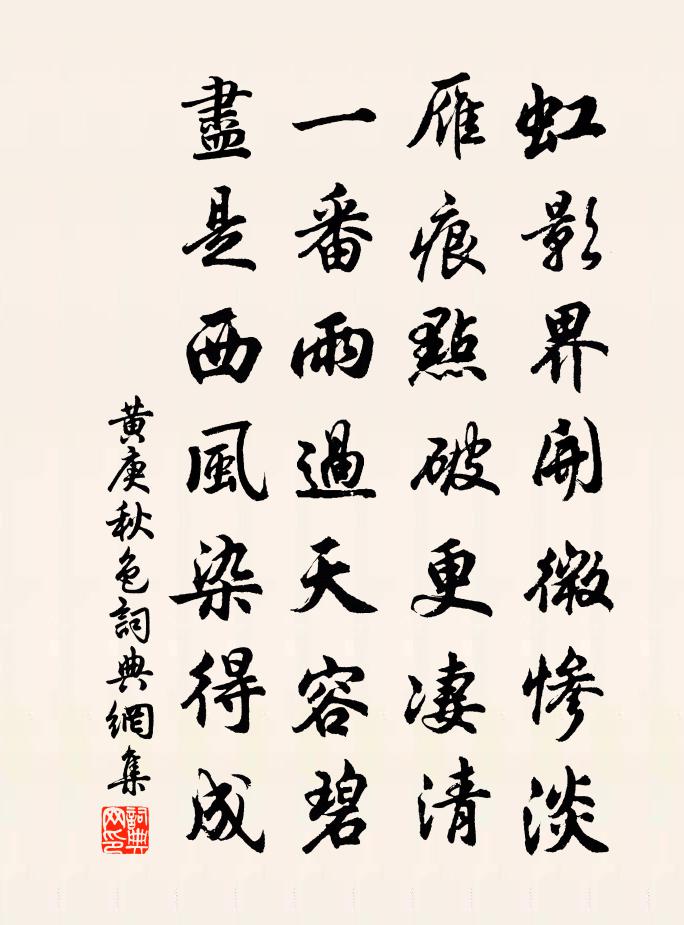 虹影界開微慘淡
雁痕點破更凄清
一番雨過天容碧
盡是西風染得成
黃庚秋色詞典網集
詞典
网印